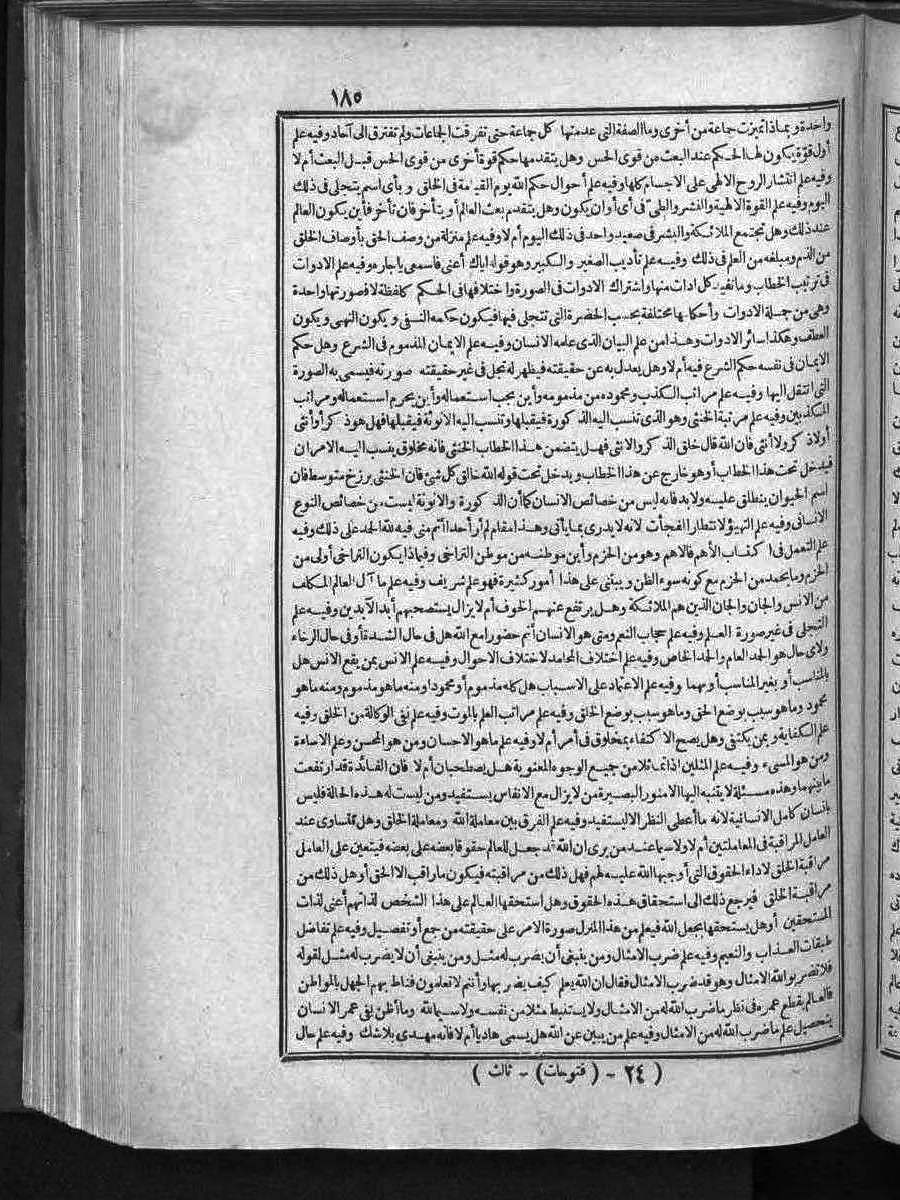 ١٨٥
واحدة وبماذا تميزت جماعة من أخرى وما الصفة التى عدمتها كل جماعة حتى تفرقت الجاعات ولم تفترق الى آحاد وفيه علم
أول قوة يكون لها الحكم عند البعث من قوى الحس وهل يتقدمها حكم قوة أخرى من قوى الحس قبل البعث أم لا
وفيه علم انتشار الروح الالهى على الاجسام كلها وفيه علم أحوال حكم الله يوم القيامة فى الخلق وبأى اسم يتجلى فى ذلك
اليوم وفيه علم القوة الالهية والنشر والطىّ فى أى أوان يكون وهل يتقدم بعث العالم أو يتأخر فان تأخر فأين يكون العالم
عند ذلك وهل تجتمع الملائكة والبشر فى صعيد واحد فى ذلك اليوم أم لا وفيه علم منزلة من وصف الحق بأوصاف الخلق
من الذم ومبلغه من العلم فى ذلك وفيه علم تأديب الصغير والكبير وهو قوله اياك أعنى فاسمعى ياجاره وفيه علم الادوات
فى ترتيب الخطاب وما تفيد كل ادات منها واشتراك الادوات فى الصورة واختلافها فى الحكم كلفظة لا فصورتها واحدة
وهى من جملة الادوات وأحكامها مختلفة بحسب الحضرة التى تتجلى فيها فيكون حكمه النفى ويكون النهى ويكون
العطف وهكذا سائر الادوات وهذا من علم البيان الذى علمه الانسان وفيه علم الايمان المذموم فى الشرع وهل حكم
الايمان فى نفسه حكم الشرع فيه أم لا وهل يعدل به عن حقيقته فظهر له تجل فى غير حقيقته صورته فيسمى به الصورة
التى انتقل اليها وفيه علم مراتب الكذب ومحموده من مذمومه وأين يجب استعماله وأين يحرم استعماله ومراتب
المكذبين وفيه علم مرتبة الخنثى وهو الذى تنسب اليه الذكورة فيقبلها وتنسب اليه الانوثة فيقبلها فهل هو ذكر أو أنثى
أو لا ذكر ولا أنثى فان الله قال خلق الذكر والانثى فهل يتضمن هذا الخطاب الخنثى فانه مخلوق ينسب اليه الامران
فيدخل تحت هذا الخطاب أو هو خارج عن هذا الخطاب ويدخل تحت قوله الله خالق كل شئ فان الخنثى برزخ متوسط فان
اسم الحيوان ينطلق عليه ولا بد فانه ليس من خصائص الانسان كما أن الذكورة والانوثة ليست من خصائص النوع
الانسانى وفيه علم التهيؤ لانتظار الفجأت لانه لا يدرى بما يأتى وهذا مقام لم أر أحدا أتم منى فيه لله الحمد على ذلك وفيه
علم التعمل فى اكتساب الأهم فالاهم وهو من الحزم وأين موطنه من موطن التراخى وفيماذا يكون التراخى أولى من
الحزم وما يحمد من الحزم مع كونه سوء الظن ويبتنى على هذا أمور كثيرة فهو علم شريف وفيه علم مآل العالم المكلف
من الانس والجان والجان الذين هم الملائكة وهل يرتفع عنهم الخوف أم لا يزال يستصحبهم أبد الآبدين وفيه علم
التجلى فى غير صورة العلم وفيه علم حجاب النعم ومتى هو الانسان أتم حضورا مع الله هل فى حال الشدة أو فى حال الرخاء
ولاى حال هو الحمد العام والحمد الخاص وفيه علم اختلاف المحامد لاختلاف الاحوال وفيه علم الانس بمن يقع الانس هل
بالمناسب أو بغير المناسب أو بهما وفيه علم الاعتماد على الاسباب هل كله مذموم أو محمود او منه ما هو مذموم ومنه ما هو
محمود وما هو سبب بوضع الحق وما هو سبب بوضع الخلق وفيه علم مراتب العلم بالموت وفيه علم نفى الوكالة من الخلق وفيه
علم الكفاية وبمن يكتفى وهل يصح الاكتفاء بمخلوق فى أمر أم لا وفيه علم ما هو الاحسان ومن هو المحسن وعلم الاساءة
ومن هو المسىء وفيه علم المثلين اذا تماثلا من جميع الوجوه المعنوية هل يصطحبان أم لا فان الفائدة قد ارتفعت
ما بينهما وهذه مسئلة لا يتنبه اليها الا منور البصيرة من لا يزال مع الانفاس يستفيد ومن ليست له هذه الحالة فليس
بانسان كامل الانسانية لانه ما أعطى النظر الا ليستفيد وفيه علم الفرق بين معاملة الله ومعاملة الخلق وهل تتساوى عند
العامل المراقبة فى المعاملتين أم لا ولا سيما عند من يرى ان الله قد جعل للعالم حقوقا بعضه على بعضه فيتعين على العامل
مراقبة الخلق لاداء الحقوق التى أوجبها الله عليه لهم فهل ذلك من مراقبته فيكون ما راقب الا الحق أو هل ذلك من
مراقبة الخلق فيرجع ذلك الى استحقاق هذه الحقوق وهل استحقها العالم على هذا الشخص لذاتهم أعنى لذات
المستحقين أو هل يستحقها بجعل الله فيعلم من هذا المنزل صورة الامر على حقيقته من جمع أو تفصيل وفيه علم تفاضل
طبقات العذاب والنعيم وفيه علم ضرب الامثال ومن ينبغى أن يضرب له مثل ومن ينبغى أن لا يضرب له مثل لقوله
فلا تضربوا لله الامثال وهو قد ضرب الامثال فقال ان الله يعلم كيف يضربها وأنتم لا تعلمون فناط بهم الجهل بالمواطن
فالعالم يقطع عمره فى نظر ما ضرب الله له من الامثال ولا يستنبط مثلا من نفسه ولا سيما لله وما أظن يفى عمر الانسان
بتحصيل علم ما ضرب الله له من الامثال وفيه علم من يبين عن الله هل يسمى هاديا أم لا فانه مهدى بلا شك وفيه علم حال
( ٢٤ - (فتوحات) - ثالث )